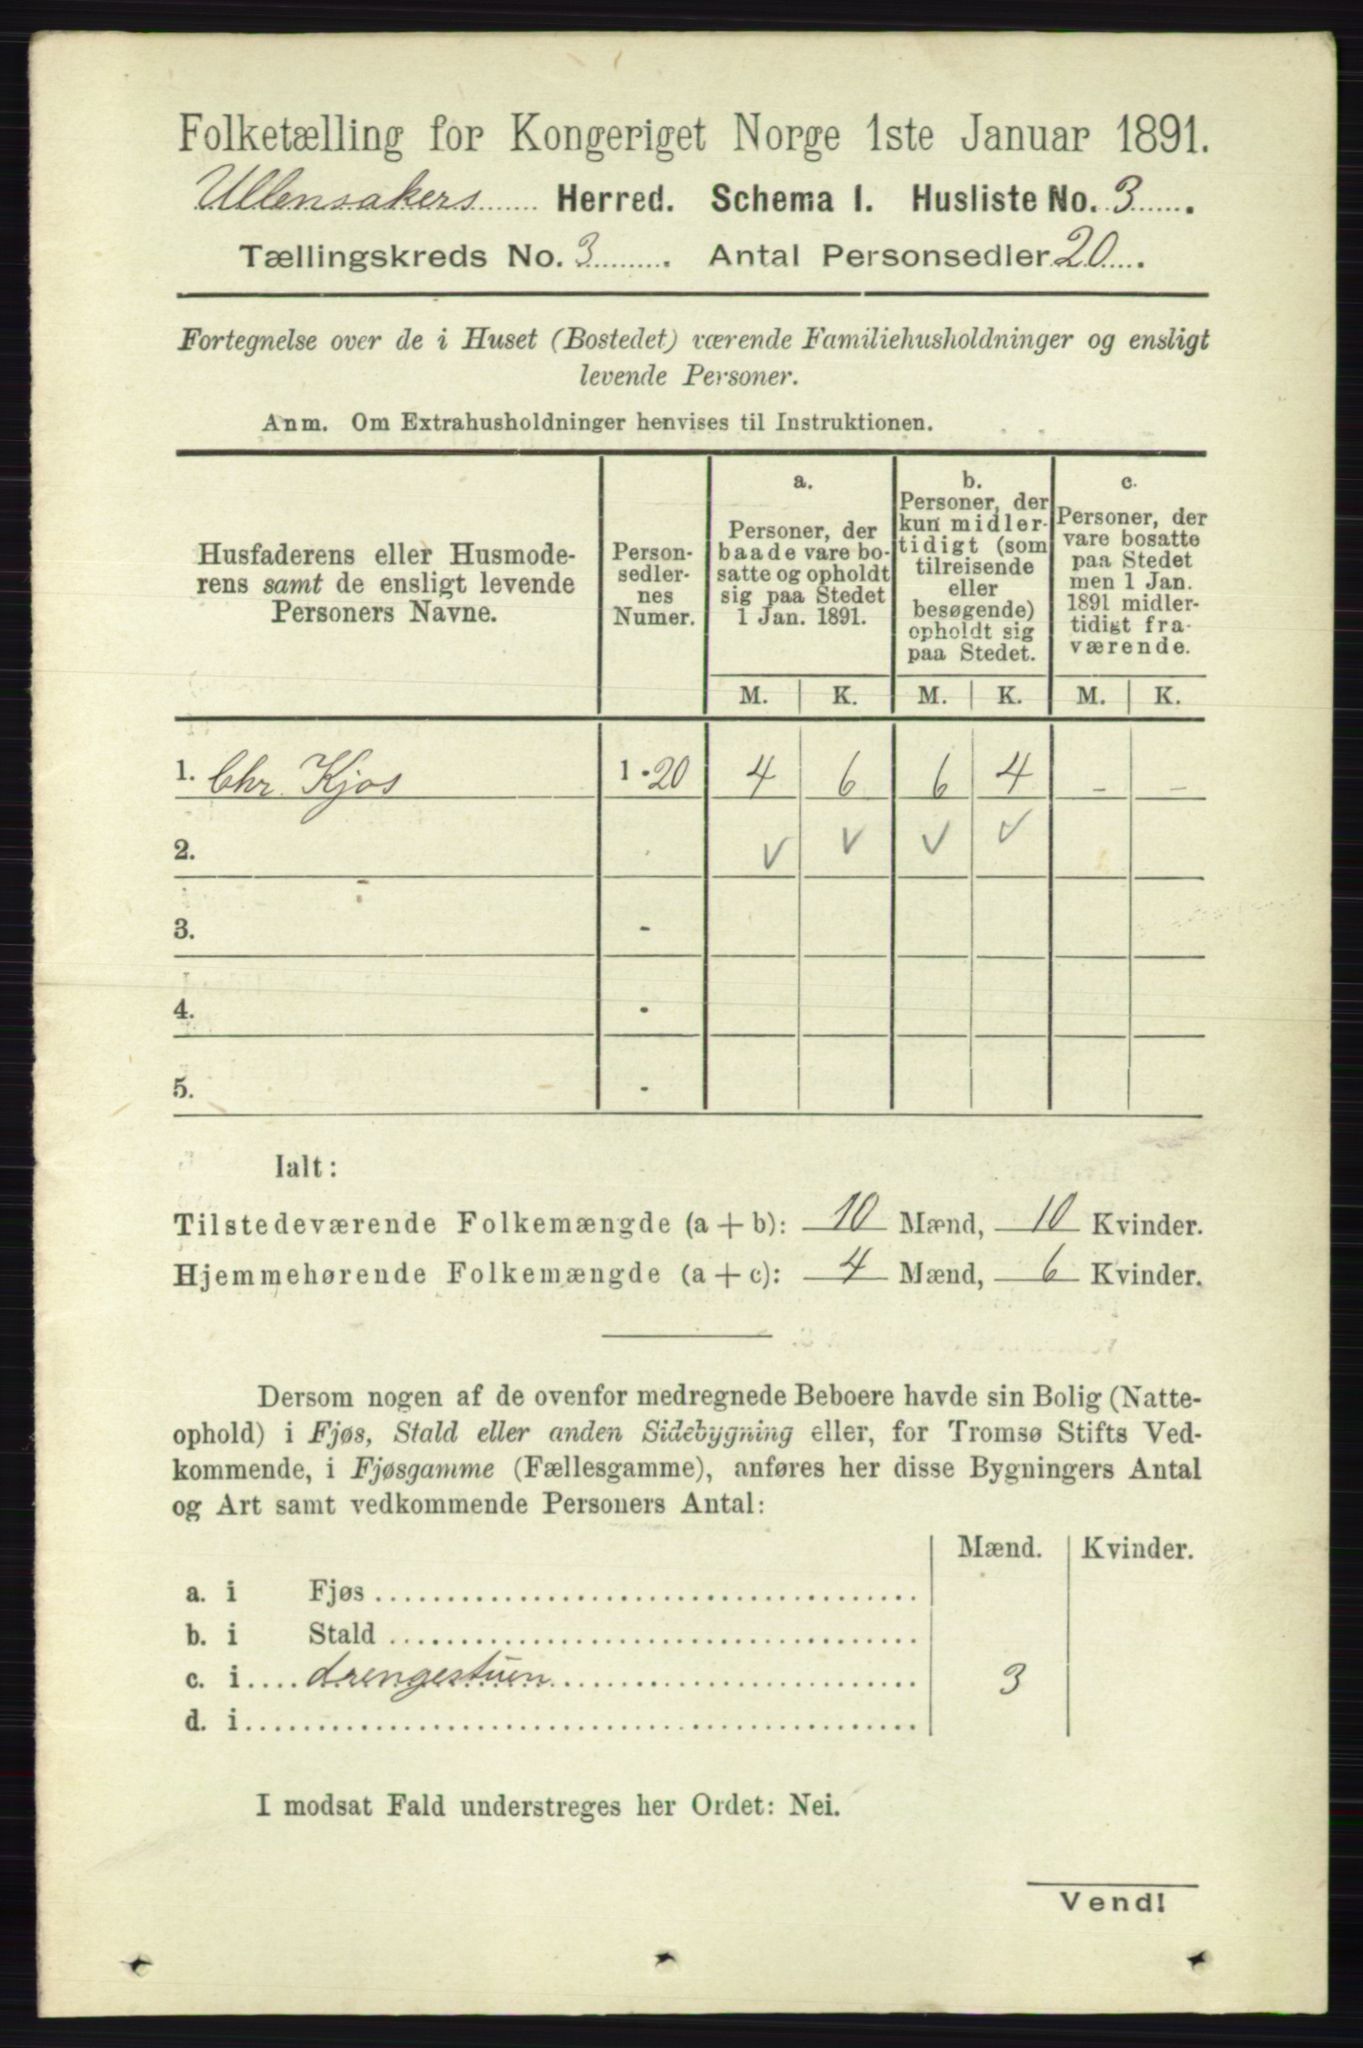 Folketælling for Kongeriget Norge 1ste Januar 1891.
Ullensakers Herred. Schema 1. Husliste No. 3.
Tællingskreds No. 3. Antal Personsedler 20.
Fortegnelse over de i Huset (Bostedet) værende Familiehusholdninger og ensligt
levende Personer.
Anm. Om Extrahusholdninger henvises til Instruktionen.
Husfaderens eller Husmode-
rens samt de ensligt levende
Personers Navne.
Person-
sedler-
nes
Numer.
a.
Personer, der
baade vare bo-
satte og opholdt
sig paa Stedet
1 Jan. 1891.
b.
Personer, der
kun midler-
tidigt (som
tilreisende
eller
besøgende)
opholdt sig
paa Stedet.
c.
Personer, der
vare bosatte
paa Stedet
men 1 Jan.
1891 midler-
tidigt fra-
værende.
M. K. M. K. M. K.
1. Chr. Kjos 1 - 20 4 6 6 4 - -
2. V V V V
3. -
4. -
5. -
Ialt:
Tilstedeværende Folkemængde (a + b): 10 Mænd, 10 Kvinder.
Hjemmehørende Folkemængde (a + c): 4 Mænd, 6 Kvinder.
Dersom nogen af de ovenfor medregnede Beboere havde sin Bolig (Natte-
ophold) i Fjøs, Stald eller anden Sidebygning eller, for Tromsø Stifts Ved-
kommende, i Fjøsgamme (Fællesgamme), anføres her disse Bygningers Antal
og Art samt vedkommende Personers Antal:
Mænd. Kvinder.
a. i Fjøs
b. i Stald
c. i drengestuen 3
d. i
I modsat Fald understreges her Ordet: Nei.
Vend!